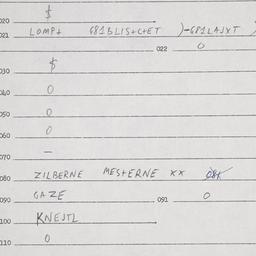 020 $
021 LOMP+ 681BLIS+C+ET )-6P1LAJXT
022 0
030 $
040 0
050 0
060 0
070 -
080 ZILBERNE MES+ERNE XX
090 GAZE 091 0
100 KNEJTL
110 0